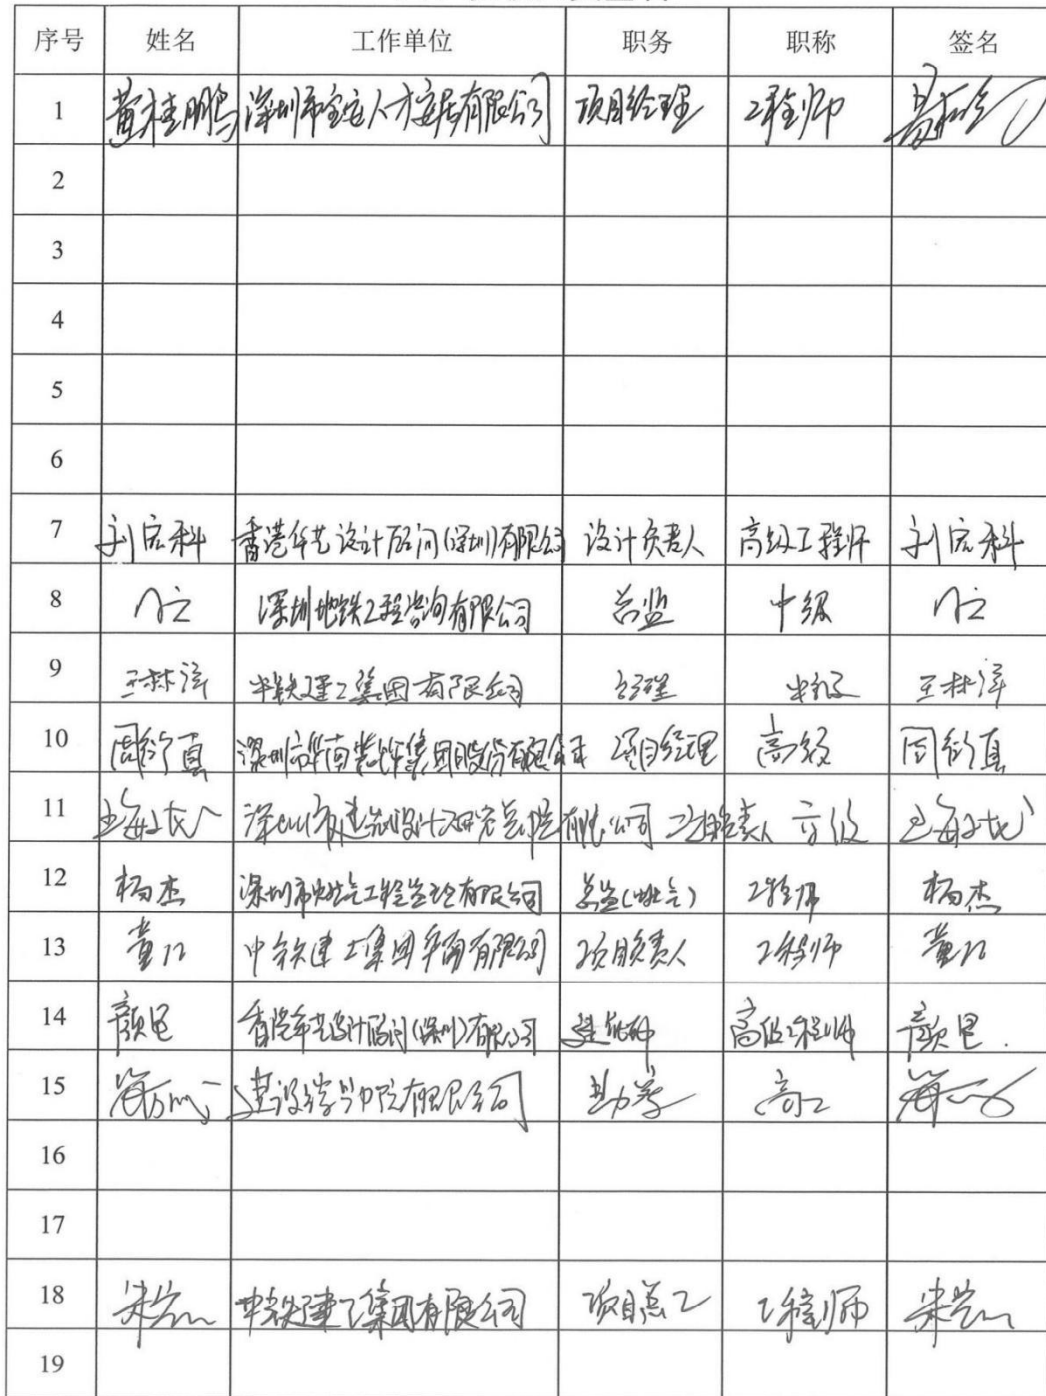 序号 姓名 工作单位 职务 职称 签名
1 黄桂鹏 深圳市宝安人才安居有限公司 项目经理 工程师
2
3
4
5
6
7 刘宏科 香港华艺设计顾问(深圳)有限公司 设计负责人 高级工程师 刘宏科
8 深圳地铁工程咨询有限公司 总监 中级
9 王林洋 中铁建工集团有限公司 经理 中级 王林洋
10 周衍真 深圳市华南装饰集团股份有限公司 项目经理 高级 周衍真
11 深圳市建筑设计研究总院有限公司 高级
12 杨杰 深圳市燃气工程监理有限公司 总监(燃气) 工程师 杨杰
13 中铁建工集团华南有限公司 项目负责人 工程师
14 颜 香港华艺设计顾问(深圳)有限公司 建筑师 高级工程师 颜
15 有限公司 勘察 高工
16
17
18 中铁建工集团有限公司 项目总工 工程师
19